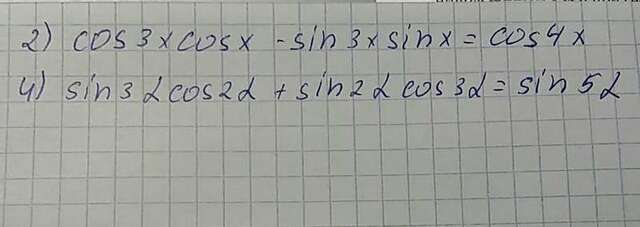 2) cos3xcosx - sin3xsinx = cos4x
4) sin3αcos2α + sin2αcos3α = sin5α